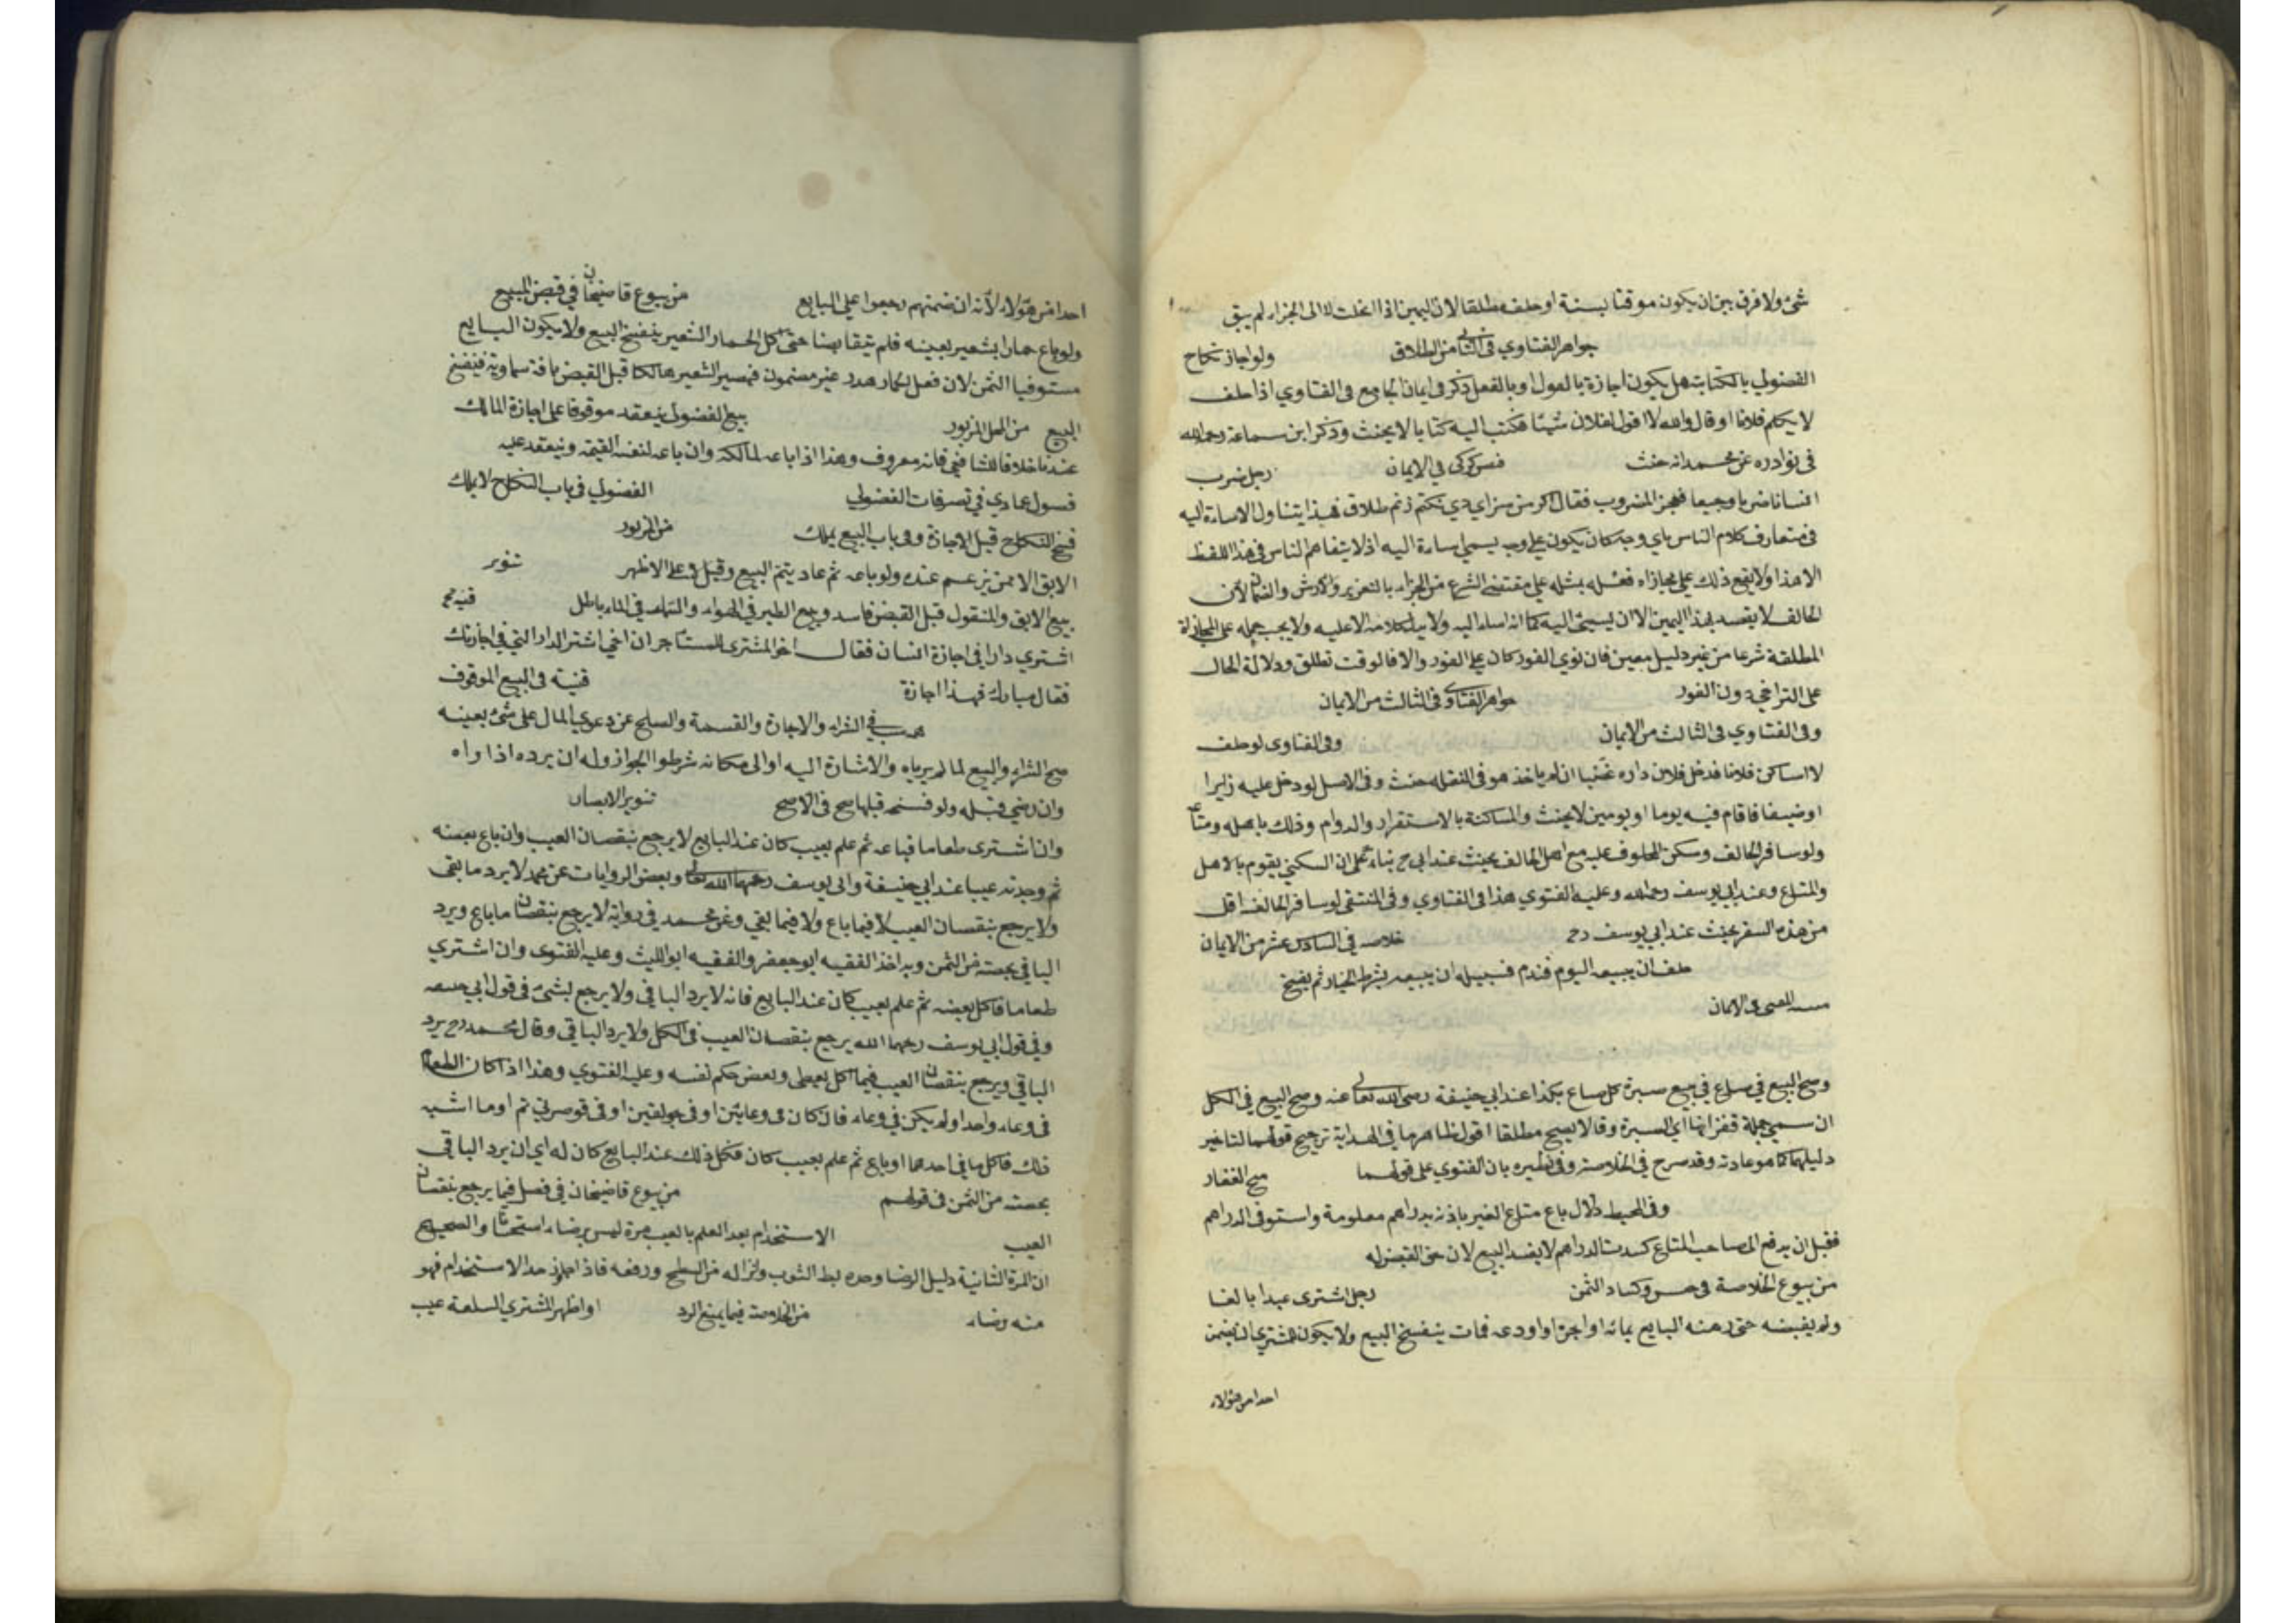 شئ ولا فرق بين ان يكون موقتا بسنة او حلف مطلقا لان اليمين اذا انحلت لا الى الجزاء لم يبق
جواهر الفتاوي فى الثانى من الطلاق ولو اجاز نكاح
الفضولي بالكتابة هل يكون اجازة بالقول او بالفعل ذكر فى ايمان الجامع فى الفتاوي اذا حلف
لا يكلم فلانا او قال والله لا اقول لفلان شيئا فكتب اليه كتابا لا يحنث وذكر ابن سماعة رحمه الله
فى نوادره عن محمد انه حنث فى الايمان رجل ضرب
انسانا ضربا وجيعا فعجز المضروب فقال اكر من سزاي وي نكنم زنم طلاق فهذا يتناول الاساءة اليه
فى متعارف كلام الناس باي وجه كان يكون على وجه يسمى اساءة اليه اذ لا يتفاهم الناس فى هذا اللفظ
الا هذا ولا يقع ذلك على مجازاه فعله بمثله على مقتضى الشرع من الجزاء بالتعزير والارش والضمان لان
الحالف لا يقصد بهذا اليمين الا ان يسيئ اليه كما انه اساء اليه ولا يدل كلامه الا عليه ولا يجب حمله على المجازاة
المطلقة شرعا من غير دليل معين فان نوي الفور كان على الفور والا فالوقت تطلق ودلالة الحال
على التراخي دون الفور جواهر الفتاوى فى الثالث من الايمان
وفى الفتاوي فى الثالث من الايمان وفى الفتاوى لو حلف
لا اساكن فلانا فدخل فلان داره غصبا ان لم ياخذ هو فى النقلة حنث وفى الاصل لو دخل عليه زايرا
او ضيفا فاقام فيه يوما او يومين لا يحنث والمساكنة بالاستقرار والدوام وذلك باهله ومتاعه
ولو سافر الحالف وسكن المحلوف عليه مع اهل الحالف يحنث عند ابى ح بناء على ان السكنى يقوم بالاهل
والمتاع وعند ابى يوسف رحمه الله وعليه الفتوي هذا فى الفتاوي وفى المنتقى لو سافر الحالف اقل
من هذه السفر يحنث عند ابى يوسف رح خلاصه فى السادس عشر من الايمان
حلف ان يبيعه اليوم فندم فسبيله ان يبيعه بشرط الخيار ثم يفسخ
فى الايمان
وصح البيع فى صاع فى بيع صبرة كل صاع بكذا عند ابى حنيفة رضى الله تعالى عنه وصح البيع فى الكل
ان سمى جملة قفزانها اي الصبرة وقالا يصح مطلقا اقول ظاهر ما فى الهداية ترجيح قولهما لتاخير
دليلهما كما هو عادته وقد صرح فى الخلاصة وفى نظيره بان الفتوي على قولهما منح الغفار
وفى المحيط دلال باع متاع الغير باذنه بدراهم معلومة واستوفى الدراهم
فقبل ان يدفع الى صاحب المتاع كسدت الدراهم لا يفسد البيع لان حق القبض له
من بيوع الخلاصة فى حبس وكساد الثمن رجل اشترى عبدا بالف
ولم يقبضه حتى رهنه البايع بمائة او اجره او اودعه فمات ينفسخ البيع ولا يكون للمشتري ان يضمن
احدا من هؤلاء
احدا من هؤلاء لانه ان ضمنهم رجعوا على البايع من بيوع قاضيخان فى قبض المبيع
ولو باع حمارا بشعير بعينه فلم يتقابضا حتى اكل الحمار الشعير ينفسخ البيع ولا يكون البايع
مستوفيا الثمن لان فعل الحمار هدر غير مضمون فيصير الشعير هالكا قبل القبض بافة سماوية فينفسخ
البيع من المحل المزبور بيع الفضولى ينعقد موقوفا على اجازة المالك
عندنا خلافا للشافعى فانه معروف وهذا اذا باعه لمالكه وان باعه لنفسه وينعقد عليه
فصول عمادي فى تصرفات الفضولي الفضولي فى باب النكاح لا يملك
فسخ النكاح قبل الاجازة وفى باب البيع يملك من المزبور
الابق الا ممن يزعم عنده ولو باعه ثم عاد يتم البيع وقيل لا على الاظهر تنوير
بيع الابق والمنقول قبل القبض فاسد وبيع الطير فى الهواء والسمك فى الماء باطل قنيه
اشتري دارا فى اجازة انسان فقال اخو المشترى للمستاجر ان اخي اشترى الدار التي فى اجارتك
فقال مبارك فهذا اجازة قنية فى البيع الموقوف
فى الشراء والاجارة والقسمة والصلح عن دعوى المال على شئ بعينه
صح الشراء والبيع لما لم يرياه والاشارة اليه او الى مكانه شرط الجواز وله ان يرده اذا راه
وان رضي قبله ولو فسخه قبلها صح فى الاصح تنوير الابصار
وان اشترى طعاما فباعه ثم علم بعيب كان عند البايع لا يرجع بنقصان العيب وان باع بعضه
ثم وجد به عيبا عند ابي حنيفة وابى يوسف رحمهما الله تعالى وبعض الروايات عن محمد لا يرد ما بقى
ولا يرجع بنقصان العيب لا فيما باع ولا فيما بقي وعن محمد فى رواية لا يرجع بنقصان ما باع ويرد
الباقي بحصته من الثمن وبه اخذ الفقيه ابو جعفر والفقيه ابو الليث وعليه الفتوى وان اشتري
طعاما فاكل بعضه ثم علم بعيب كان عند البايع فانه لا يرد الباقي ولا يرجع بشئ فى قول ابي حنيفه
وفى قول ابى يوسف رحمهما الله يرجع بنقصان العيب فى الكل ولا يرد الباقي وقال محمد رح يرد
الباقي ويرجع بنقصان العيب فيما اكل وعليه الفتوي وهذا اذا كان الطعام
فى وعاء واحد او لم يكن فى وعاء فان كان فى وعائين او فى جولقين او فى قوصرتي تمر او ما اشبه
ذلك فاكل ما فى احدهما او باع ثم علم بعيب كان فكل ذلك عند البايع كان له ان يرد الباقى
بحصته من الثمن فى قولهم من بيوع قاضيخان فى فصل فيما يرجع بنقصان
العيب الاستخدام بعد العلم بالعيب مرة ليس برضاء استحسانا والصحيح
ان المرة الثانية دليل الرضا وحده لبط الثوب وانزاله من السطح ورفعه فاذا جاوز حد الاستخدام فهو
منه رضاء من الخلاصة فيما يمنع الرد او اظهر المشترى السلعة عيب